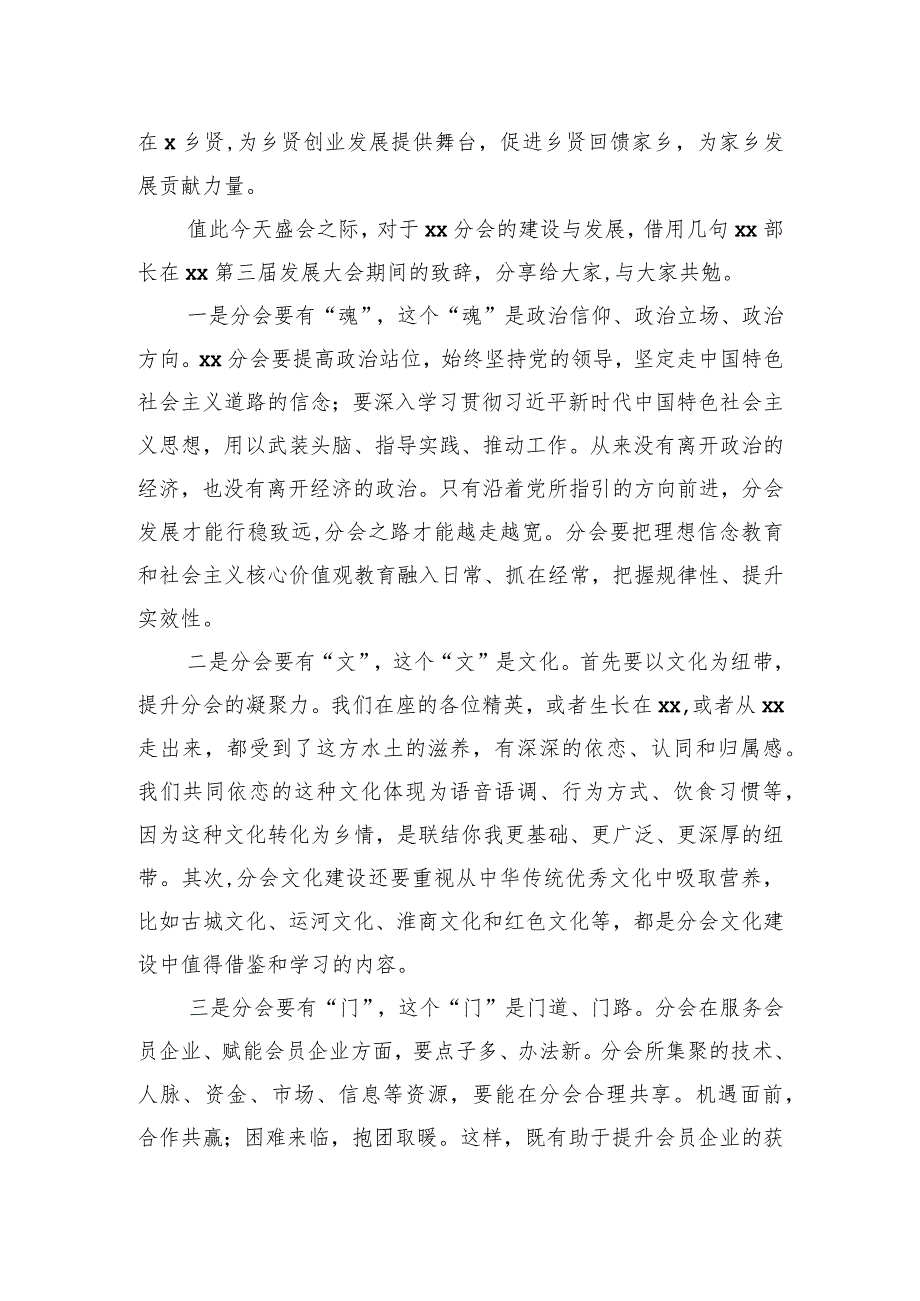 在x乡贤,为乡贤创业发展提供舞台，促进乡贤回馈家乡，为家乡发
展贡献力量。
值此今天盛会之际，对于xx分会的建设与发展，借用几句xx部
长在xx第三届发展大会期间的致辞，分享给大家,与大家共勉。
一是分会要有“魂”，这个“魂”是政治信仰、政治立场、政治
方向。xx分会要提高政治站位，始终坚持党的领导，坚定走中国特色
社会主义道路的信念；要深入学习贯彻习近平新时代中国特色社会主
义思想，用以武装头脑、指导实践、推动工作。从来没有离开政治的
经济，也没有离开经济的政治。只有沿着党所指引的方向前进，分会
发展才能行稳致远,分会之路才能越走越宽。分会要把理想信念教育
和社会主义核心价值观教育融入日常、抓在经常，把握规律性、提升
实效性。
二是分会要有“文”，这个“文”是文化。首先要以文化为纽带，
提升分会的凝聚力。我们在座的各位精英，或者生长在xx,或者从xx
走出来，都受到了这方水土的滋养，有深深的依恋、认同和归属感。
我们共同依恋的这种文化体现为语音语调、行为方式、饮食习惯等，
因为这种文化转化为乡情，是联结你我更基础、更广泛、更深厚的纽
带。其次,分会文化建设还要重视从中华传统优秀文化中吸取营养，
比如古城文化、运河文化、淮商文化和红色文化等，都是分会文化建
设中值得借鉴和学习的内容。
三是分会要有“门”，这个“门”是门道、门路。分会在服务会
员企业、赋能会员企业方面，要点子多、办法新。分会所集聚的技术、
人脉、资金、市场、信息等资源，要能在分会合理共享。机遇面前，
合作共赢；困难来临，抱团取暖。这样，既有助于提升会员企业的获